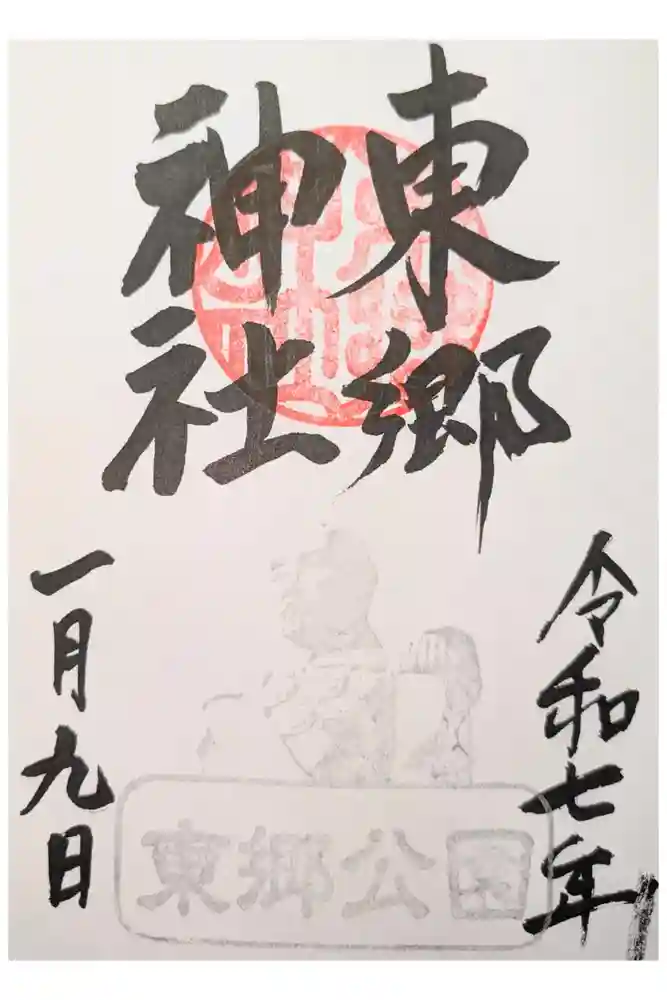 東郷
神社
令和七年
一月九日
東郷公園